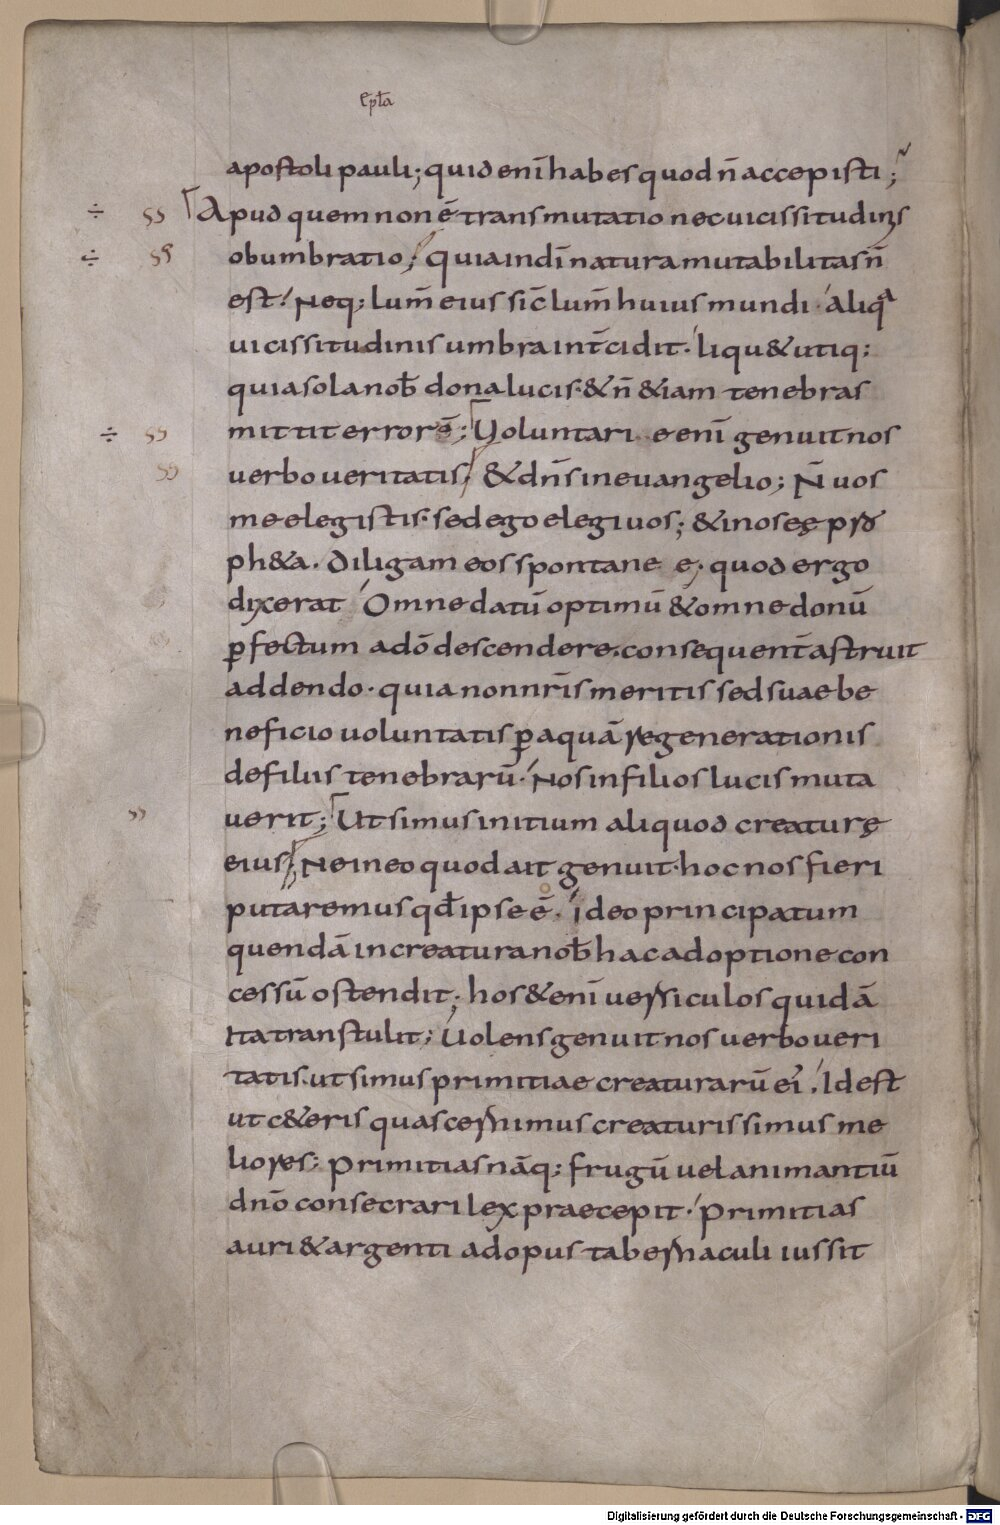 epła
apostoli pauli; quid enī habes quod n̄ accepisti;
Apud quem non ē transmutatio nec uicissitudinis
obumbratio; Quia in dī natura mutabilitas n̄
est. Neq; lum̄ eius sic̄ lum̄ huius mundi aliqᵃ
uicissitudinis umbra int̄cidit. liqu& utiq;
quia sola nob̄ dona lucis. & n̄ &iam tenebras
mittit errorē; Uoluntari e enī genuit nos
verbo veritatis; & dn̄s in evangelio; N̄ vos
me elegistis. sed ego elegi vos; & in oseę pro
ph&a. diligam eos spontane e. quod ergo
dixerat Omne datū optimū & omne donū
ꝑfectum a dō descendere. consequent̄ astruit
addendo. quia non nr̄is meritis sed suae be
neficio uoluntatis ꝑ aquā regenerationis
de filiis tenebrarū. Nos in filios lucis muta
uerit; Ut simus initium aliquod creaturę
eius; Ne in eo quod ait genuit. hoc nos fieri
putaremus qd̄ ipse ē. ideo principatum
quendā in creatura nob̄ hac adoptione con
cessū ostendit; hos &enī uersiculos quidā
Ita transtulit; Uolens genuit nos verbo veri
tatis. ut simus primitiae creaturarū ei'. Id est
ut c&eris quas cernimus creaturis simus me
liores; primitias nāq; frugū uel animantiū
dn̄o consecrari lex praecepit. primitias
auri & argenti ad opus tabernaculi iussit
÷ ss
÷ ss
÷ ss
ss
ss
Digitalisierung gefördert durch die Deutsche Forschungsgemeinschaft - DFG